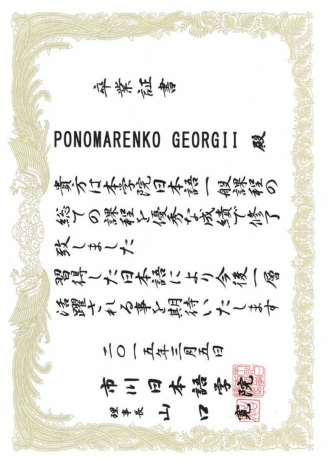 卒業証書
PONOMARENKO GEORGII 殿
貴方は本学院日本語一般課程の
総ての課程を優秀な成績で修了
致しました
習得した日本語により今後一層
活躍される事を期待いたします
二〇一五年三月五日
市川日本語学院
理事長 山口 寛